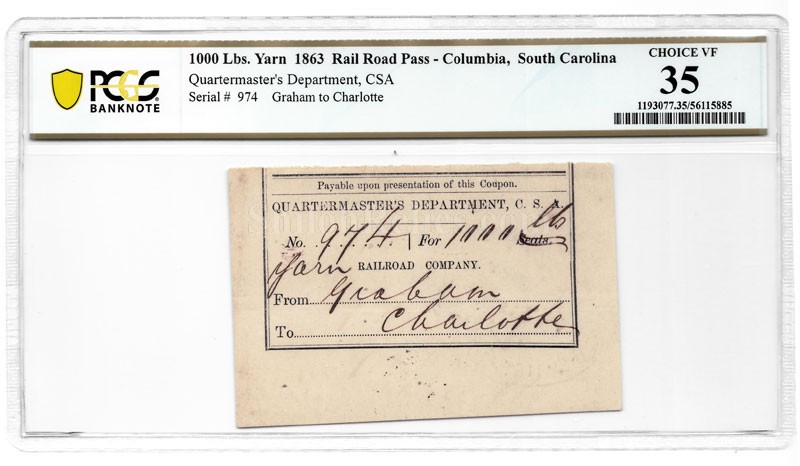 1000 Lbs. Yarn 1863 Rail Road Pass - Columbia, South Carolina
Quartermaster's Department, CSA
Serial # 974 Graham to Charlotte
PCGS
BANKNOTE
CHOICE VF
35
1193077.35/56115885
Payable upon presentation of this Coupon.
QUARTERMASTER'S DEPARTMENT, C. S. A.
No. 974 For 1000 lbs
Yarn RAILROAD COMPANY.
From Graham
To Charlotte